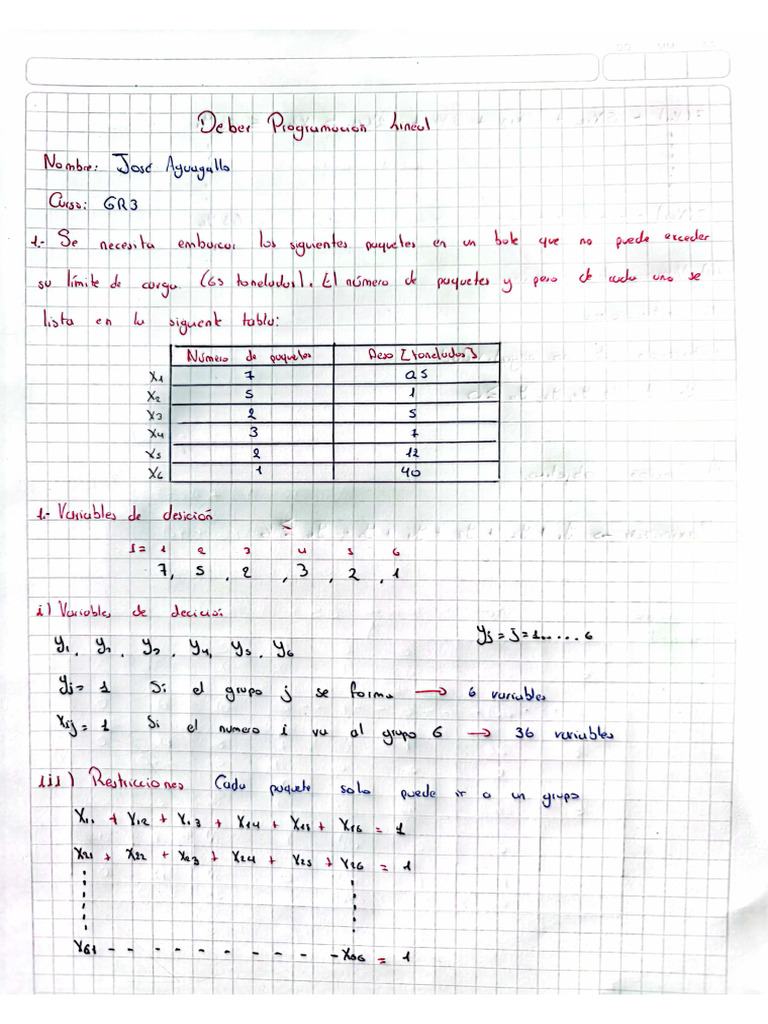 Deber Programación Lineal
Nombre: José Aguagallo
Curso: GR3
1.- Se necesita embarcar los siguientes paquetes en un bote que no puede exceder
su límite de carga (65 toneladas). El número de paquetes y peso de cada uno se
lista en la siguient tabla:
Número de paquetes Peso [toneladas]
X1 7 0.5
X2 5 1
X3 2 5
X4 3 7
X5 2 12
X6 1 40
1.- Variables de desición
i= 1 2 3 4 5 6
7, 5, 2, 3, 2, 1
i) Variables de decición
Y1, Y2, Y3, Y4, Y5, Y6 yj = j = 1.....6
Yj = 1 Si el grupo j se forma → 6 variables
Xij = 1 Si el numero i va al grupo 6 → 36 variables
iii) Restricciones Cada paquete solo puede ir a un grupo
X11 + X12 + X13 + X14 + X15 + X16 = 1
X21 + X22 + X23 + X24 + X25 + X26 = 1
X61 - - - - - - - - - - X66 = 1